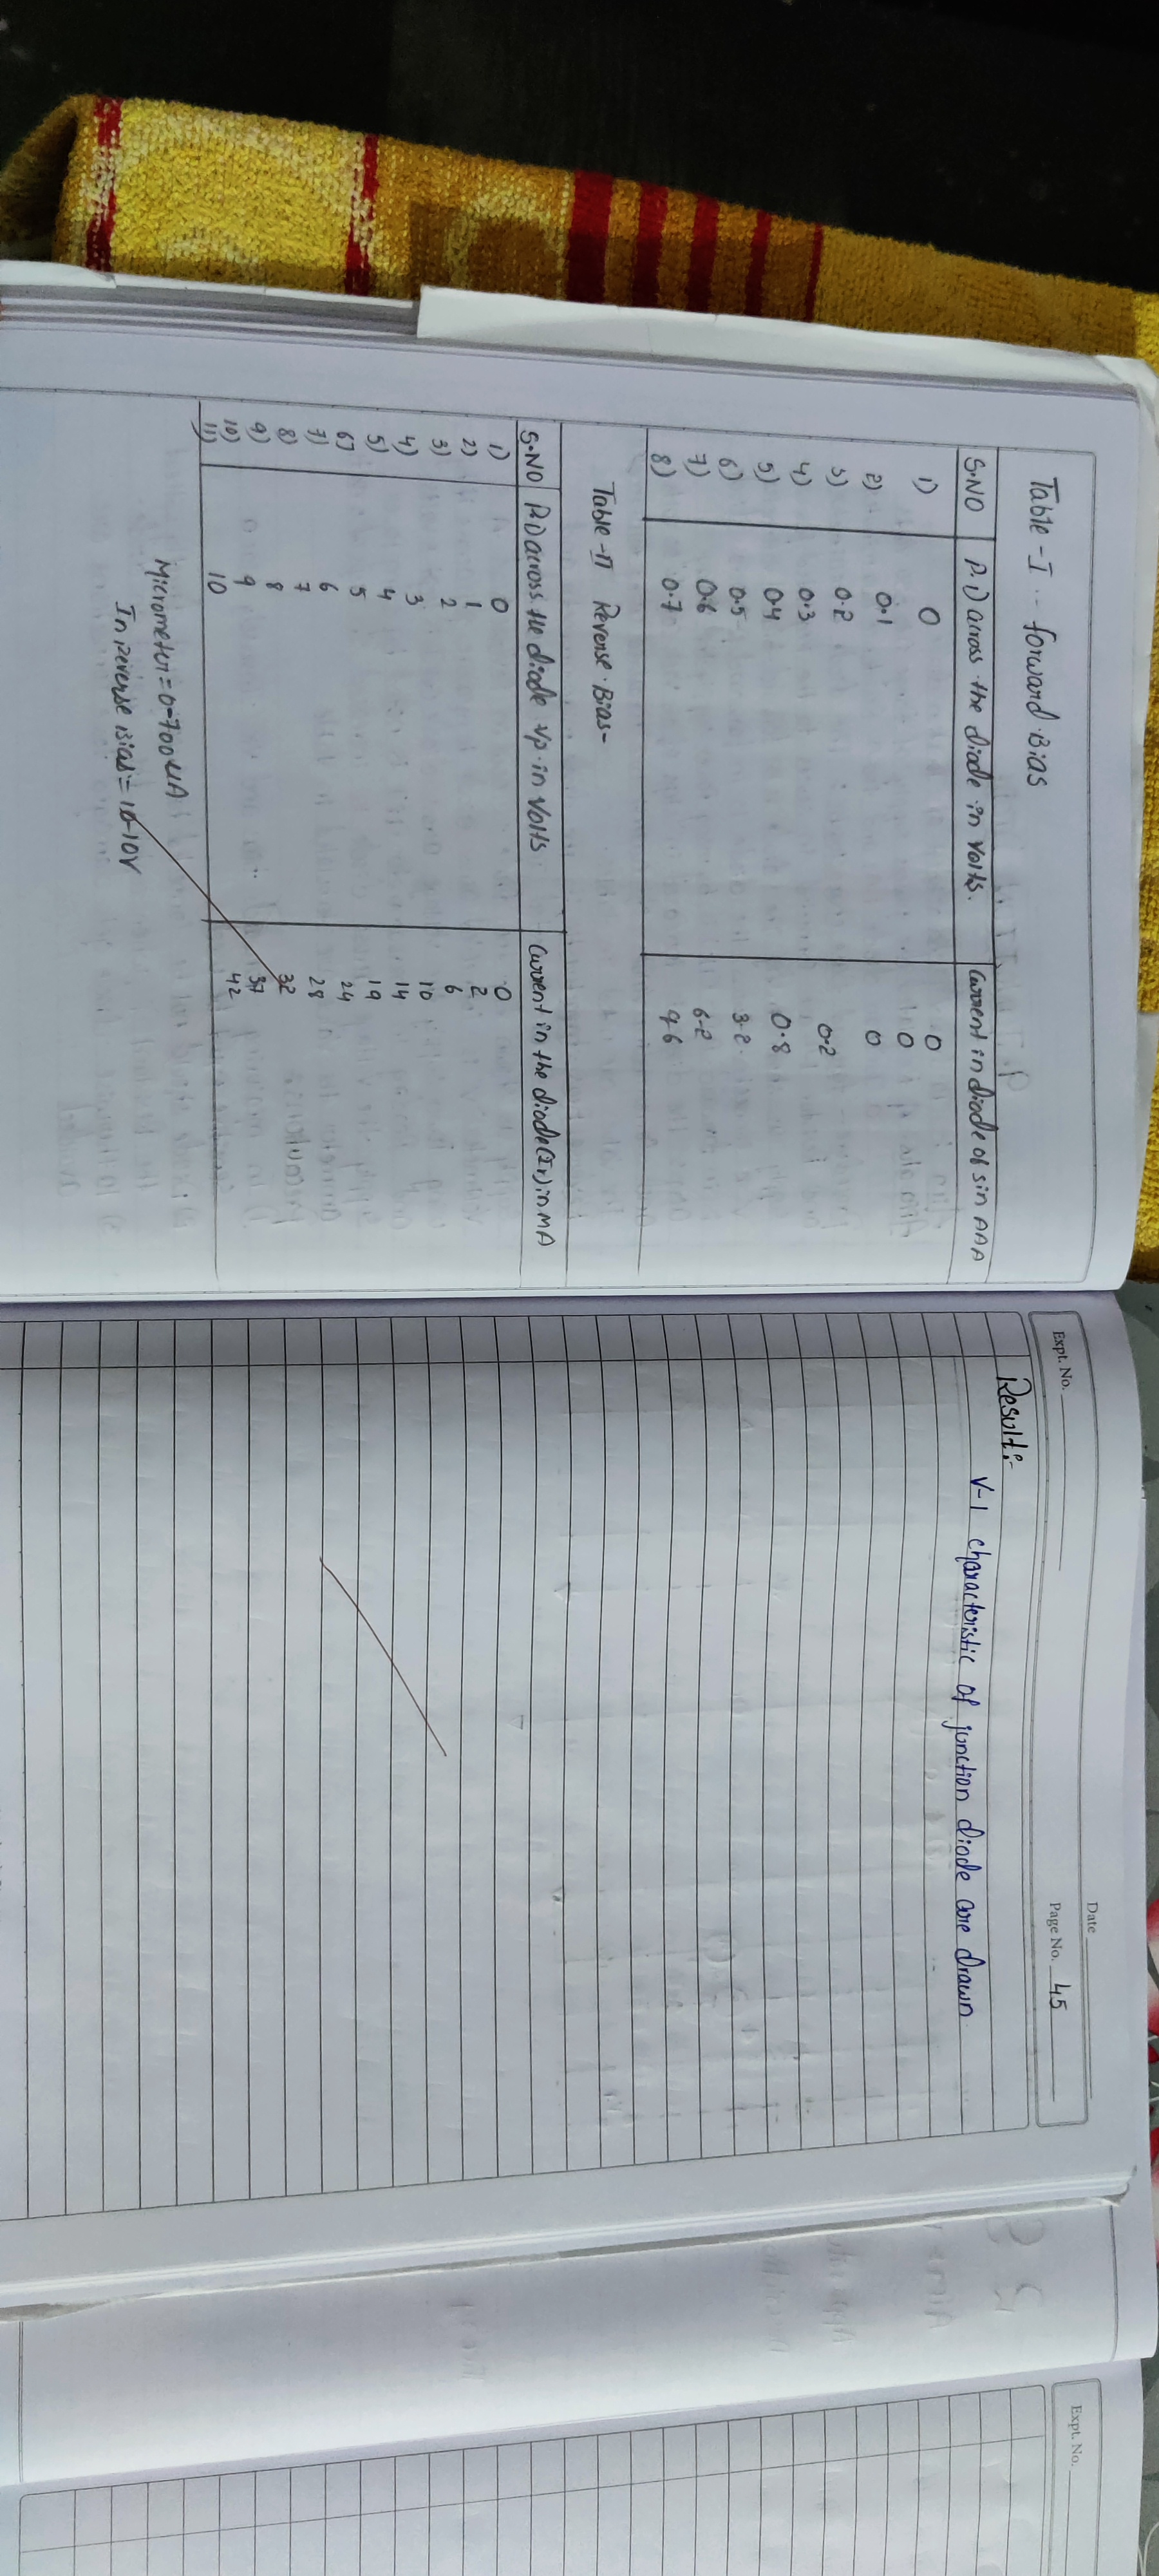 Table-I .. forward.Bias
S.NO P.D across the diode in volts. Current in diode of sin AAA
1) 0 0
2) 0.1 0
3) 0.2 0
4) 0.3 0.2
5) 0.4 0.8
6) 0.5 3.2
7) 0.6 6.2
8) 0.7 9.6
Table-II Reverse.Bias-
S.NO P.D across the diode Vp.in volts Current in the diode(Ir)in MA
1) 0 0
2) 1 2
3) 2 6
4) 3 10
5) 4 14
6) 5 19
7) 6 24
8) 7 28
9) 8 32
10) 9 37
11) 10 42
Micrometer=0-700uA
In reverse Bias = 10-10V
Expt. No.
Date
Page No. 45
Result:-
V-I characteristic of junction diode are drawn.
Expt. No.